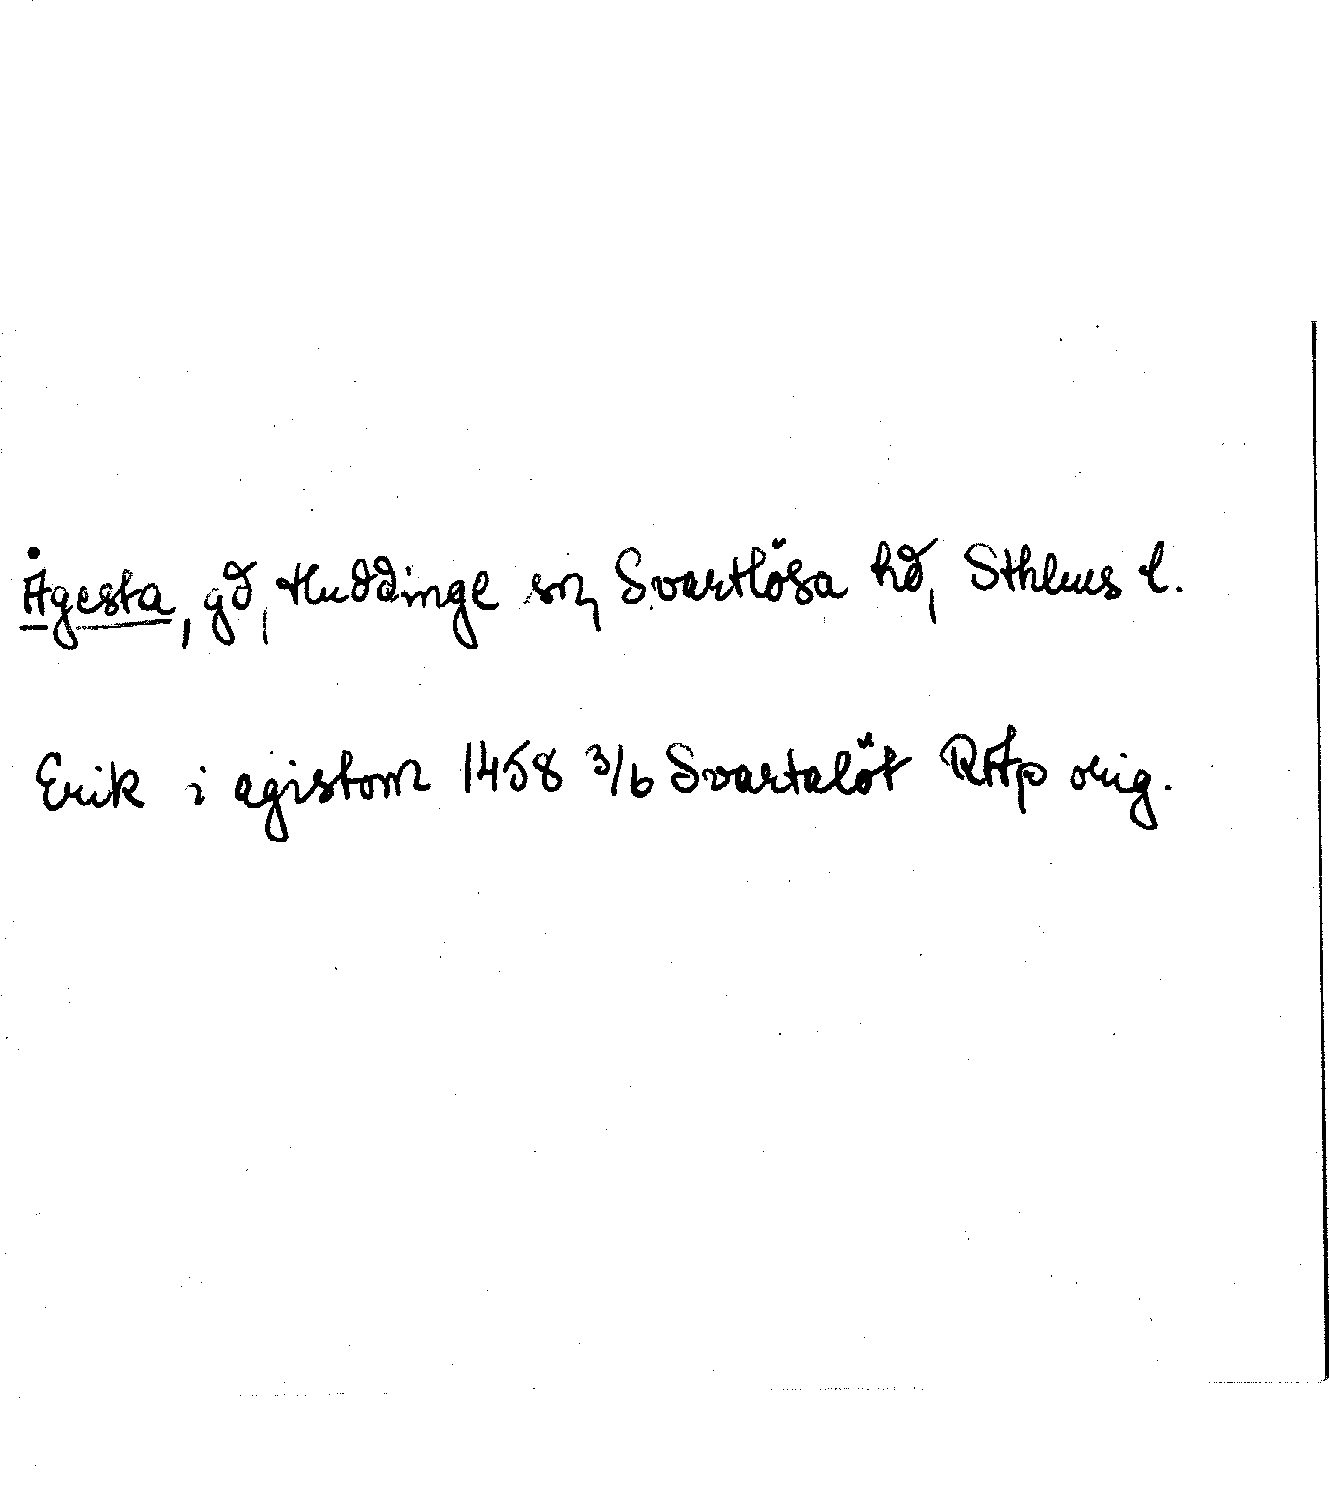 Ågesta, gd, Huddinge sn, Svartlösa hd, Sthlms l.
Erik i agistom 1458 3/6 Svartalöt RAp orig.